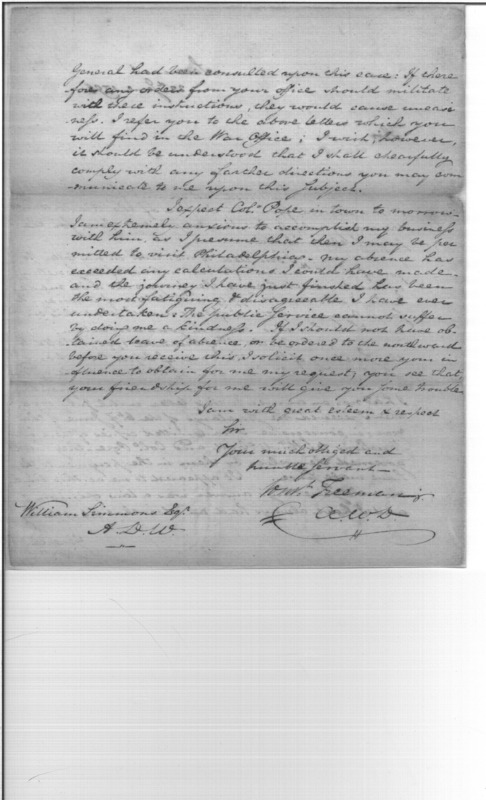 General had been consulted upon this case: If there
fore any orders from your office should militate
with these instructions, they would cause uneasi
ness. I refer you to the above letters which you
will find in the War Office; I wish, however,
it should be understood that I shall chearfully
comply with any farther directions you may com
-municate to me upon this subject.
I expect Col. Pope in town to morrow.
I am extremely anxious to accomplish my business
with him, as I presume that then I may be per
mitted to visit Philadelphia - my absence has
exceeded any calculations I could have made -
and the journey I have just finished has been
the most fatiguing & disagreeable I have ever
undertaken: The public Service cannot suffer
by doing me a kindness. If I should not have ob-
tained leave of absence, or be ordered to the northward
before you receive this, I solicit once more your in
fluence to obtain for me my request; you see that
your friendship for me will give you some trouble
I am with great esteem & respect
Sir
Your much obliged and
humble Servant -
Const. Freeman
A.W.D
William Simmons Esq.
A. D. W.